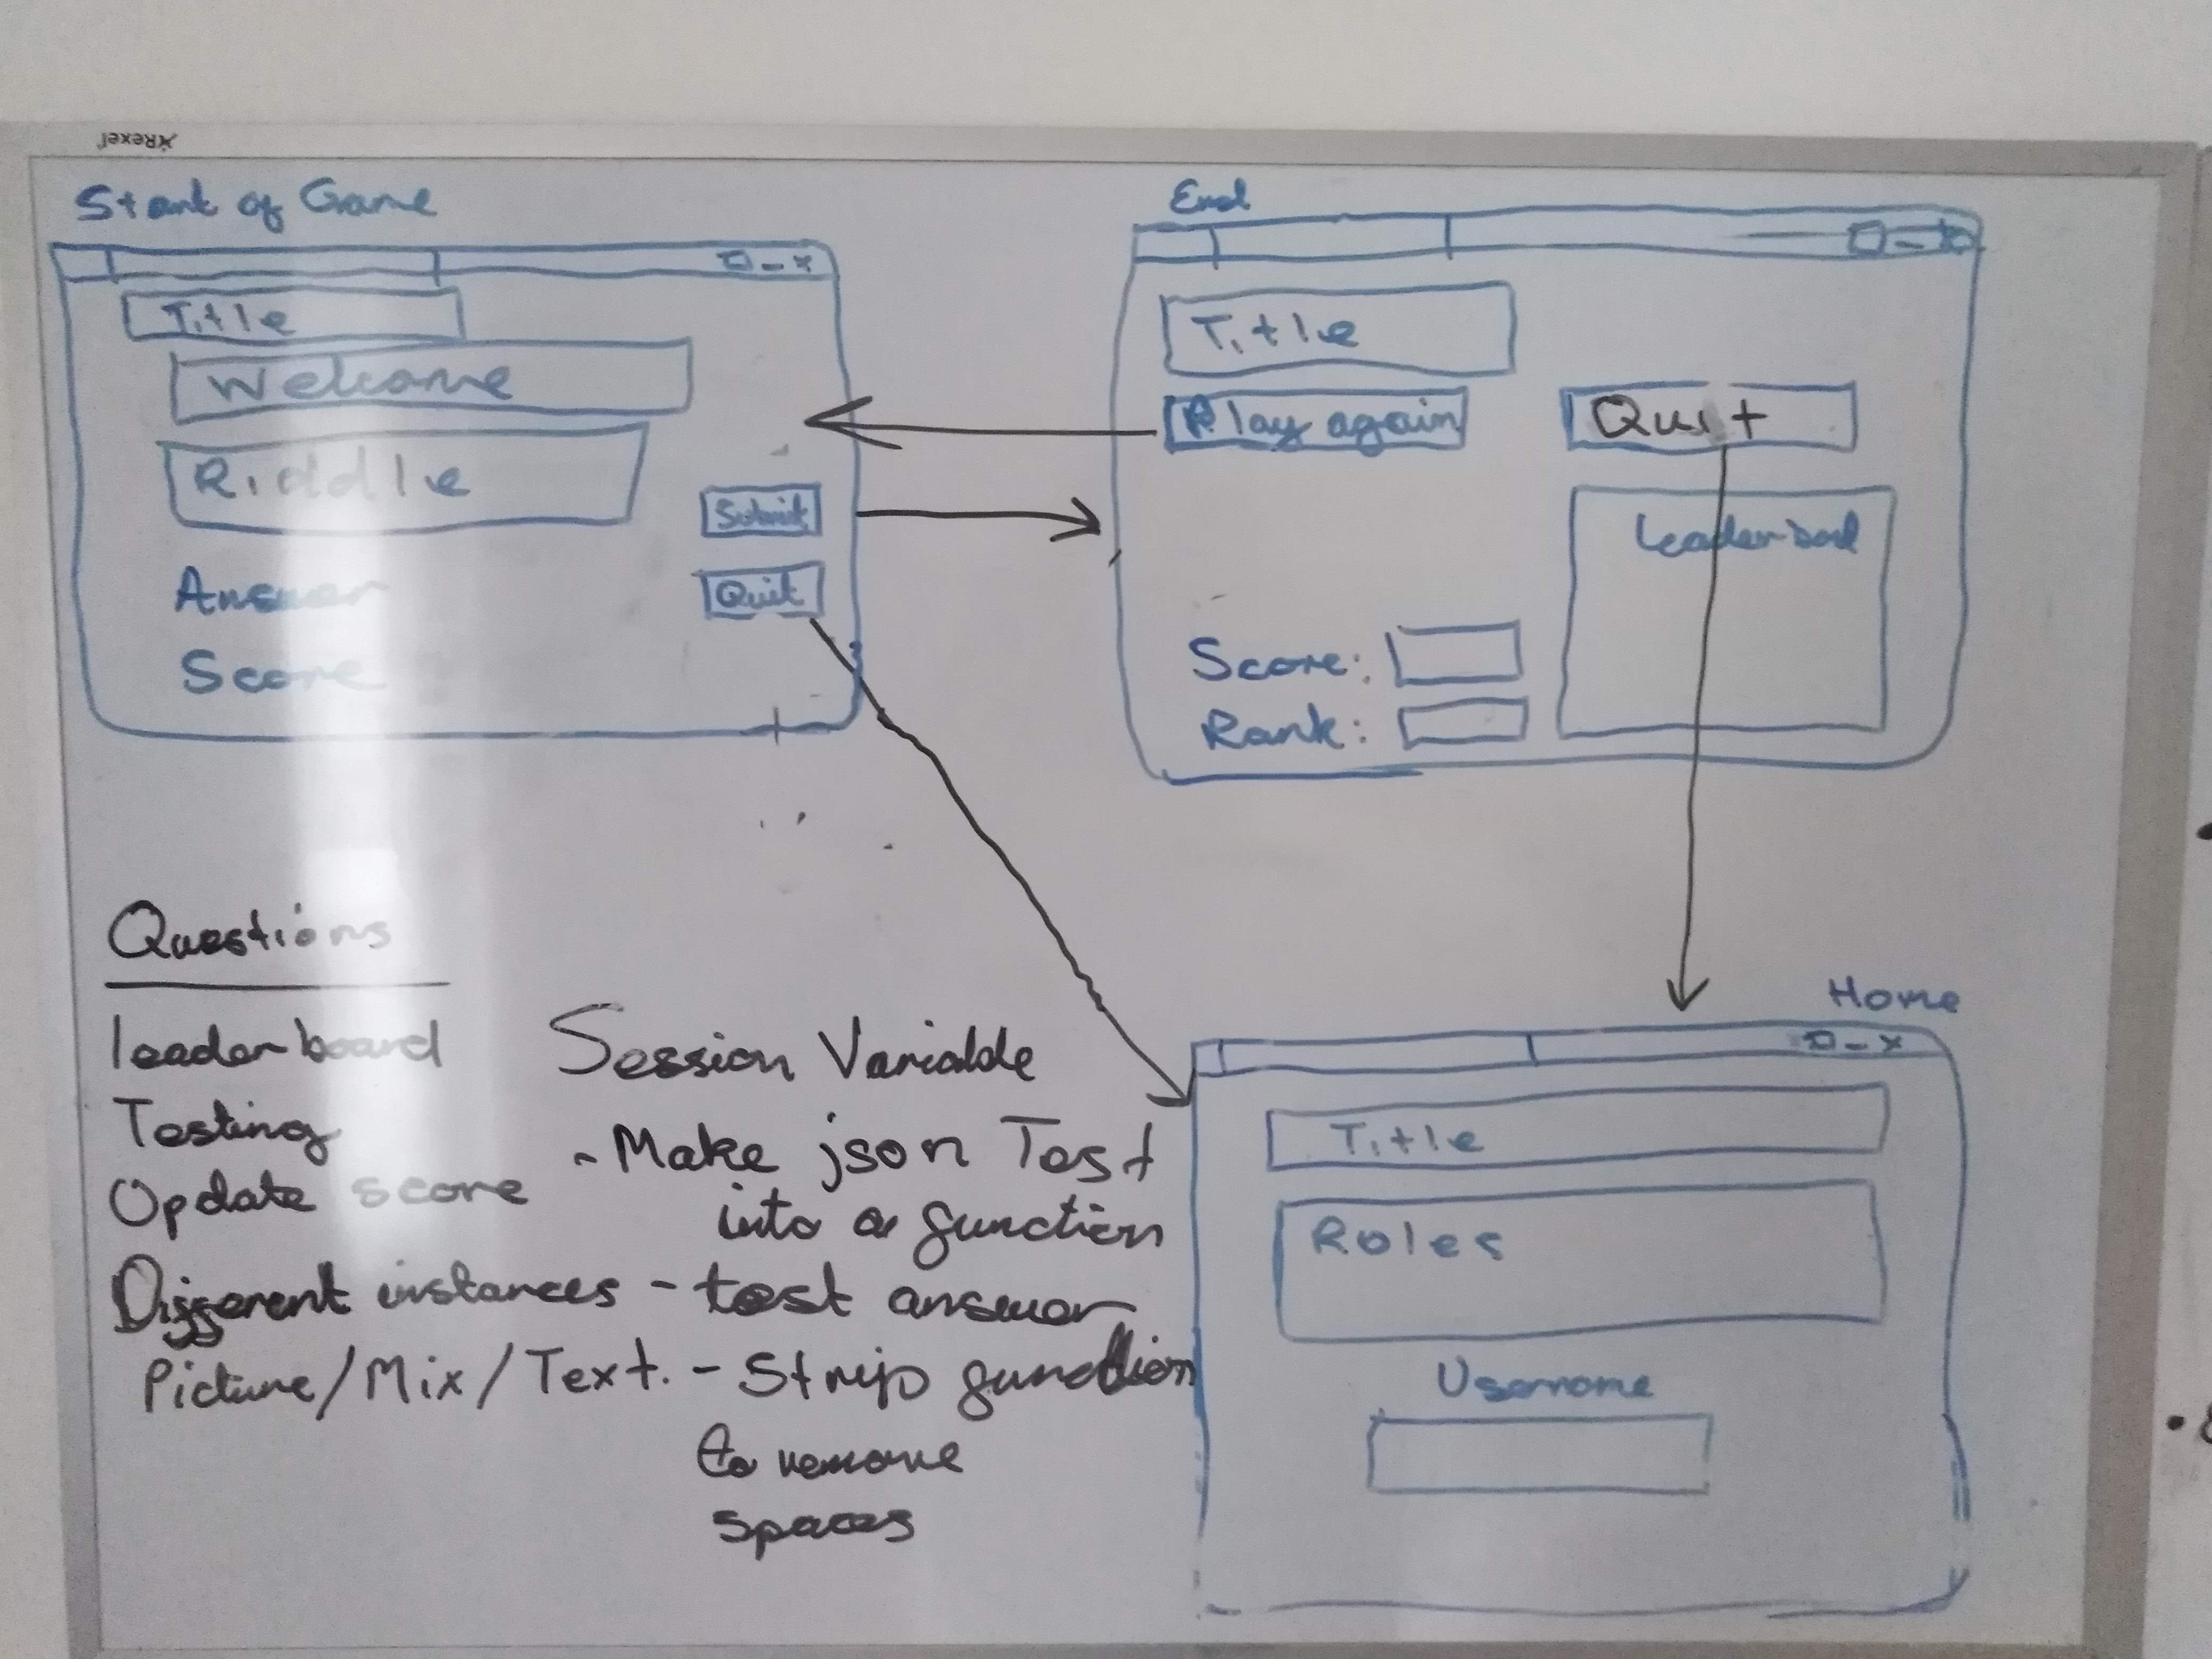 Rexel
Start of Game
Title
Welcome
Riddle
Submit
Quit
Answer
Score
End
Title
Play again
Quit
Leaderboard
Score:
Rank:
Questions
leaderboard
Testing
Update score
Different instances
Picture/Mix/Text.
Session Variable
- Make json Test
into a function
- test answer
- Strip function
to remove
spaces
Home
Title
Roles
Username